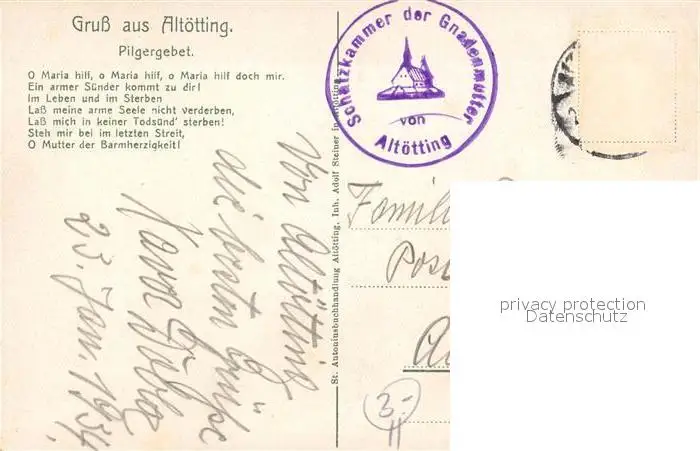 Gruß aus Altötting.
Pilgergebet.
O Maria hilf, o Maria hilf, o Maria hilf doch mir.
Ein armer Sünder kommt zu dir!
Im Leben und im Sterben
Laß meine arme Seele nicht verderben,
Laß mich in keiner Todsünd' sterben!
Steh mir bei im letzten Streit,
O Mutter der Barmherzigkeit!
Von Altötting
die besten Grüße
23. Jan. 1934.
St. Antoniusbuchhandlung Altötting, Inh. Adolf Steiner in Altötting
Schatzkammer der Gnadenmutter
von
Altötting
Famili
Post
3.-
privacy protection
Datenschutz